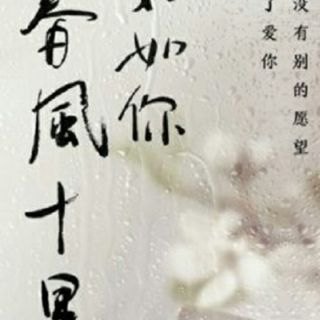 春風十里
不如你
了爱你
没有别的愿望